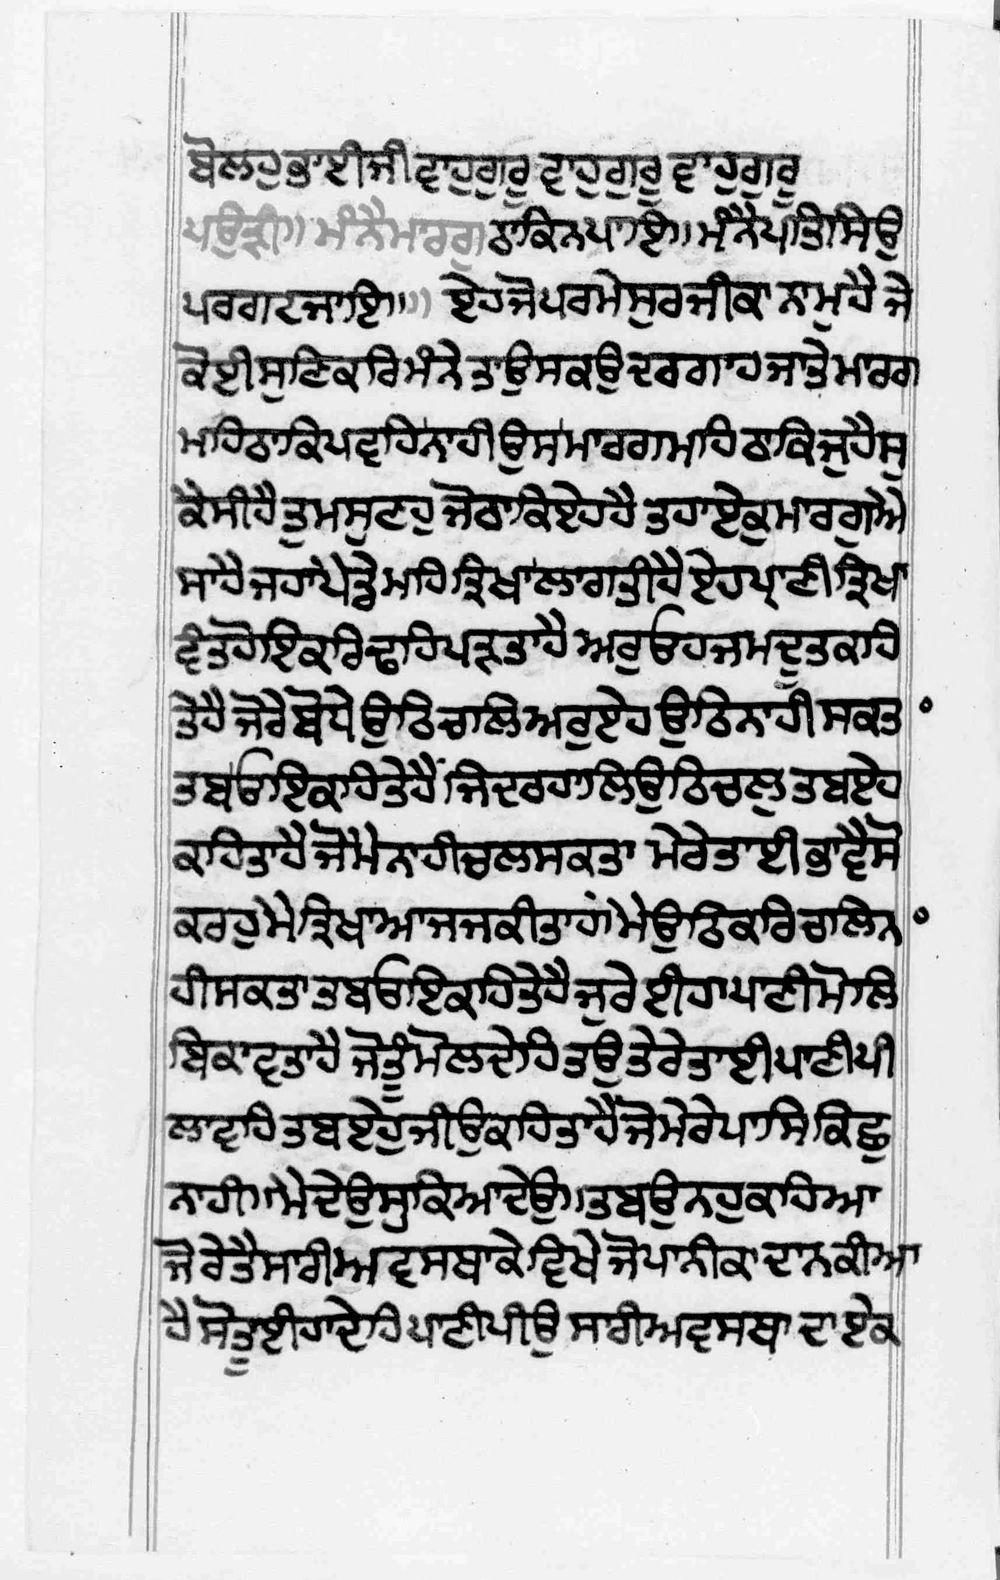 ਬੋਲਹੁ ਭਾਈ ਜੀ ਵਾਹੁਗੁਰੂ ਵਾਹੁਗੁਰੂ ਵਾਹੁਗੁਰੂ
ਪਉੜੀ॥ ਮੰਨੈ ਮਾਰਗ ਠਾਕਿ ਨ ਪਾਇ॥ ਮੰਨੈ ਪਤਿ ਸਿਉ
ਪਰਗਟ ਜਾਇ॥ ਏਹ ਜੋ ਪਰਮੇਸੁਰ ਜੀ ਕਾ ਨਾਮੁ ਹੈ ਜੇ
ਕੋਈ ਸੁਣਿ ਕਰਿ ਮੰਨੇ ਤਾ ਉਸ ਕਉ ਦਰਗਾਹ ਜਾਤੇ ਮਾਰਗ
ਮਹਿ ਠਾਕਿ ਪਵਹਿ ਨਾਹੀ ਉਸ ਮਾਰਗ ਮਹਿ ਠਾਕਿ ਜੁ ਹੈ ਸੁ
ਕੈਸੀ ਹੈ ਤੁਮ ਸੁਣਹੁ ਜੋ ਠਾਕਿ ਏਹ ਹੈ ਤਹਾ ਏਕੁ ਮਾਰਗੁ ਐ
ਸਾ ਹੈ ਜਹਾ ਪੈਂਡੇ ਮਹਿ ਤ੍ਰਿਖਾ ਲਾਗਤੀ ਹੈ ਏਹ ਪ੍ਰਾਣੀ ਤ੍ਰਿਖਾ
ਵੰਤ ਹੋਇ ਕਰਿ ਢਾਹਿ ਪੜਤਾ ਹੈ ਅਰੁ ਓਹ ਜਮਦੂਤ ਕਹਿ
ਤੇ ਹੈ ਜੋ ਰੇ ਬੰਧੇ ਉਠਿ ਚਾਲਿ ਅਰੁ ਏਹ ਉਠਿ ਨਾਹੀ ਸਕਤ
ਤਬ ਓਇ ਕਹਿਤੇ ਹੈਂ ਜਿ ਦਰਹਾਲਿ ਉਠਿ ਚਲੁ ਤਬ ਏਹ
ਕਹਿਤਾ ਹੈ ਜੋ ਮੈ ਨਾਹੀ ਚਲ ਸਕਤਾ ਮੇਰੇ ਤਾਈ ਭਾਵੈ ਸੋ
ਕਰਹੁ ਮੈ ਤ੍ਰਿਖਾ ਆਜਜ ਕੀਤਾ ਹਾਂ ਮੈ ਉਠਿ ਕਰਿ ਚਾਲਿ ਨ
ਹੀ ਸਕਤਾ ਤਬ ਓਇ ਕਹਿਤੇ ਹੈ ਜੁ ਰੇ ਈਹਾ ਪਾਣੀ ਮੋਲਿ
ਬਿਕਾਵਤਾ ਹੈ ਜੋ ਤੂੰ ਮੋਲ ਦੇਹਿ ਤਉ ਤੇਰੇ ਤਾਈ ਪਾਣੀ ਪੀ
ਲਾਵਹਿ ਤਬ ਏਹੁ ਜੀਉ ਕਹਿਤਾ ਹੈ ਜੋ ਮੇਰੇ ਪਾਸਿ ਕਿਛੁ
ਨਾਹੀ॥ ਮੈ ਦੇਉ ਸੁ ਕਿਆ ਦੇਉ॥ ਤਬ ਉਨਹੁ ਕਹਿਆ
ਜੋ ਰੇ ਤੈ ਸਾਰੀ ਅਵਸਥਾ ਕੇ ਵਿਖੇ ਜੋ ਪਾਨੀ ਕਾ ਦਾਨ ਕੀਆ
ਹੈ ਸੋ ਤੂ ਈਹਾ ਦੇਹਿ ਪਾਣੀ ਪੀਉ ਸਾਰੀ ਅਵਸਥਾ ਦਾ ਏਕ